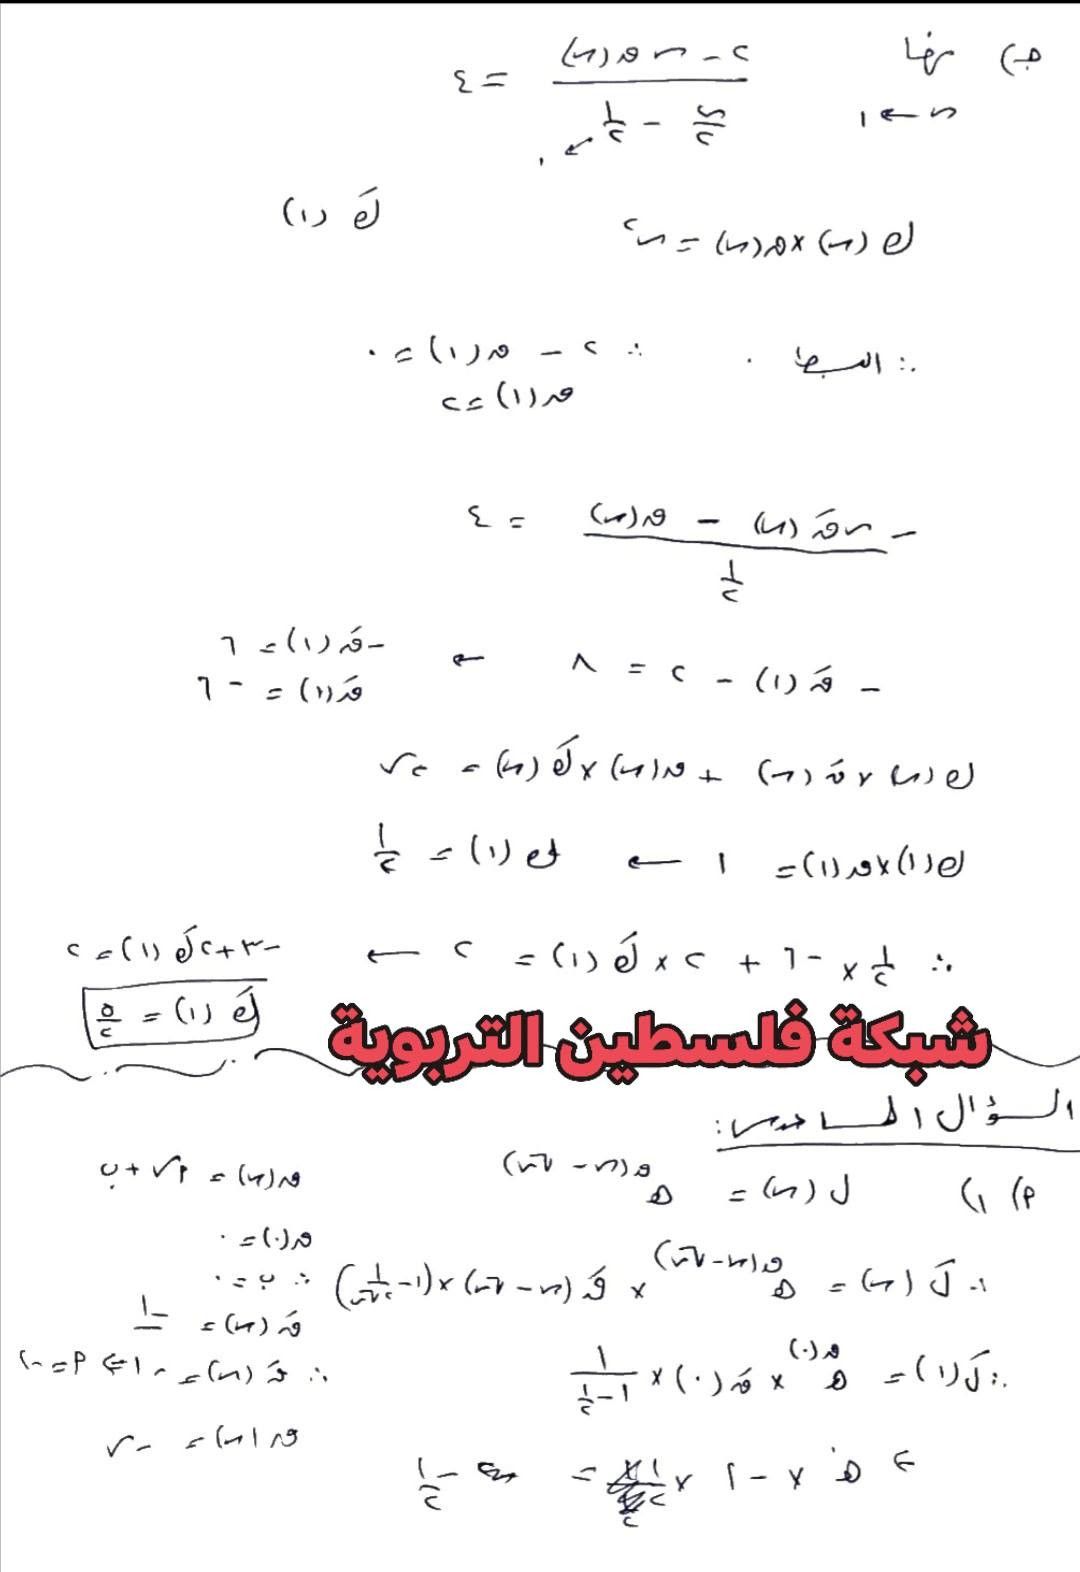 جـ) نهـا ٢ - س ق(س) = ٤
س ← ١ س/٢ - ١/٢ ← ٠
ك(س) × ق(س) = س٢ كَ(١)
∴ البسط ٠ ∴ ٢ - ق(١) = ٠
ق(١) = ٢
- س قَ(س) - ق(س) = ٤
١/٢
- قَ(١) - ٢ = ٨ ← - قَ(١) = ٦
قَ(١) = - ٦
ك(س) × قَ(س) + ق(س) × كَ(س) = ٢س
ك(١) × ق(١) = ١ ← ك(١) = ١/٢
∴ ١/٢ × - ٦ + ٢ × كَ(١) = ٢ ← - ٣ + ٢كَ(١) = ٢
كَ(١) = ٥/٢
شبكة فلسطين التربوية
السؤال السادس:
أ) ١) ل(س) = هـ ق(س - √س) ق(س) = أس + ب
ق(٠) = ٠
لَ(س) = هـ ق(س - √س) × قَ(س - √س) × (١ - ١/٢√س) ∴ ب = ٠
قَ(س) = - ١
∴ لَ(١) = هـ ق(٠) × قَ(٠) × ١ - ١/٢ ∴ قَ(س) = - ١ ⇐ أ = - ١
ق(س) = - س
هـ٠ × - ١ × ١/٢ = - ١/٢